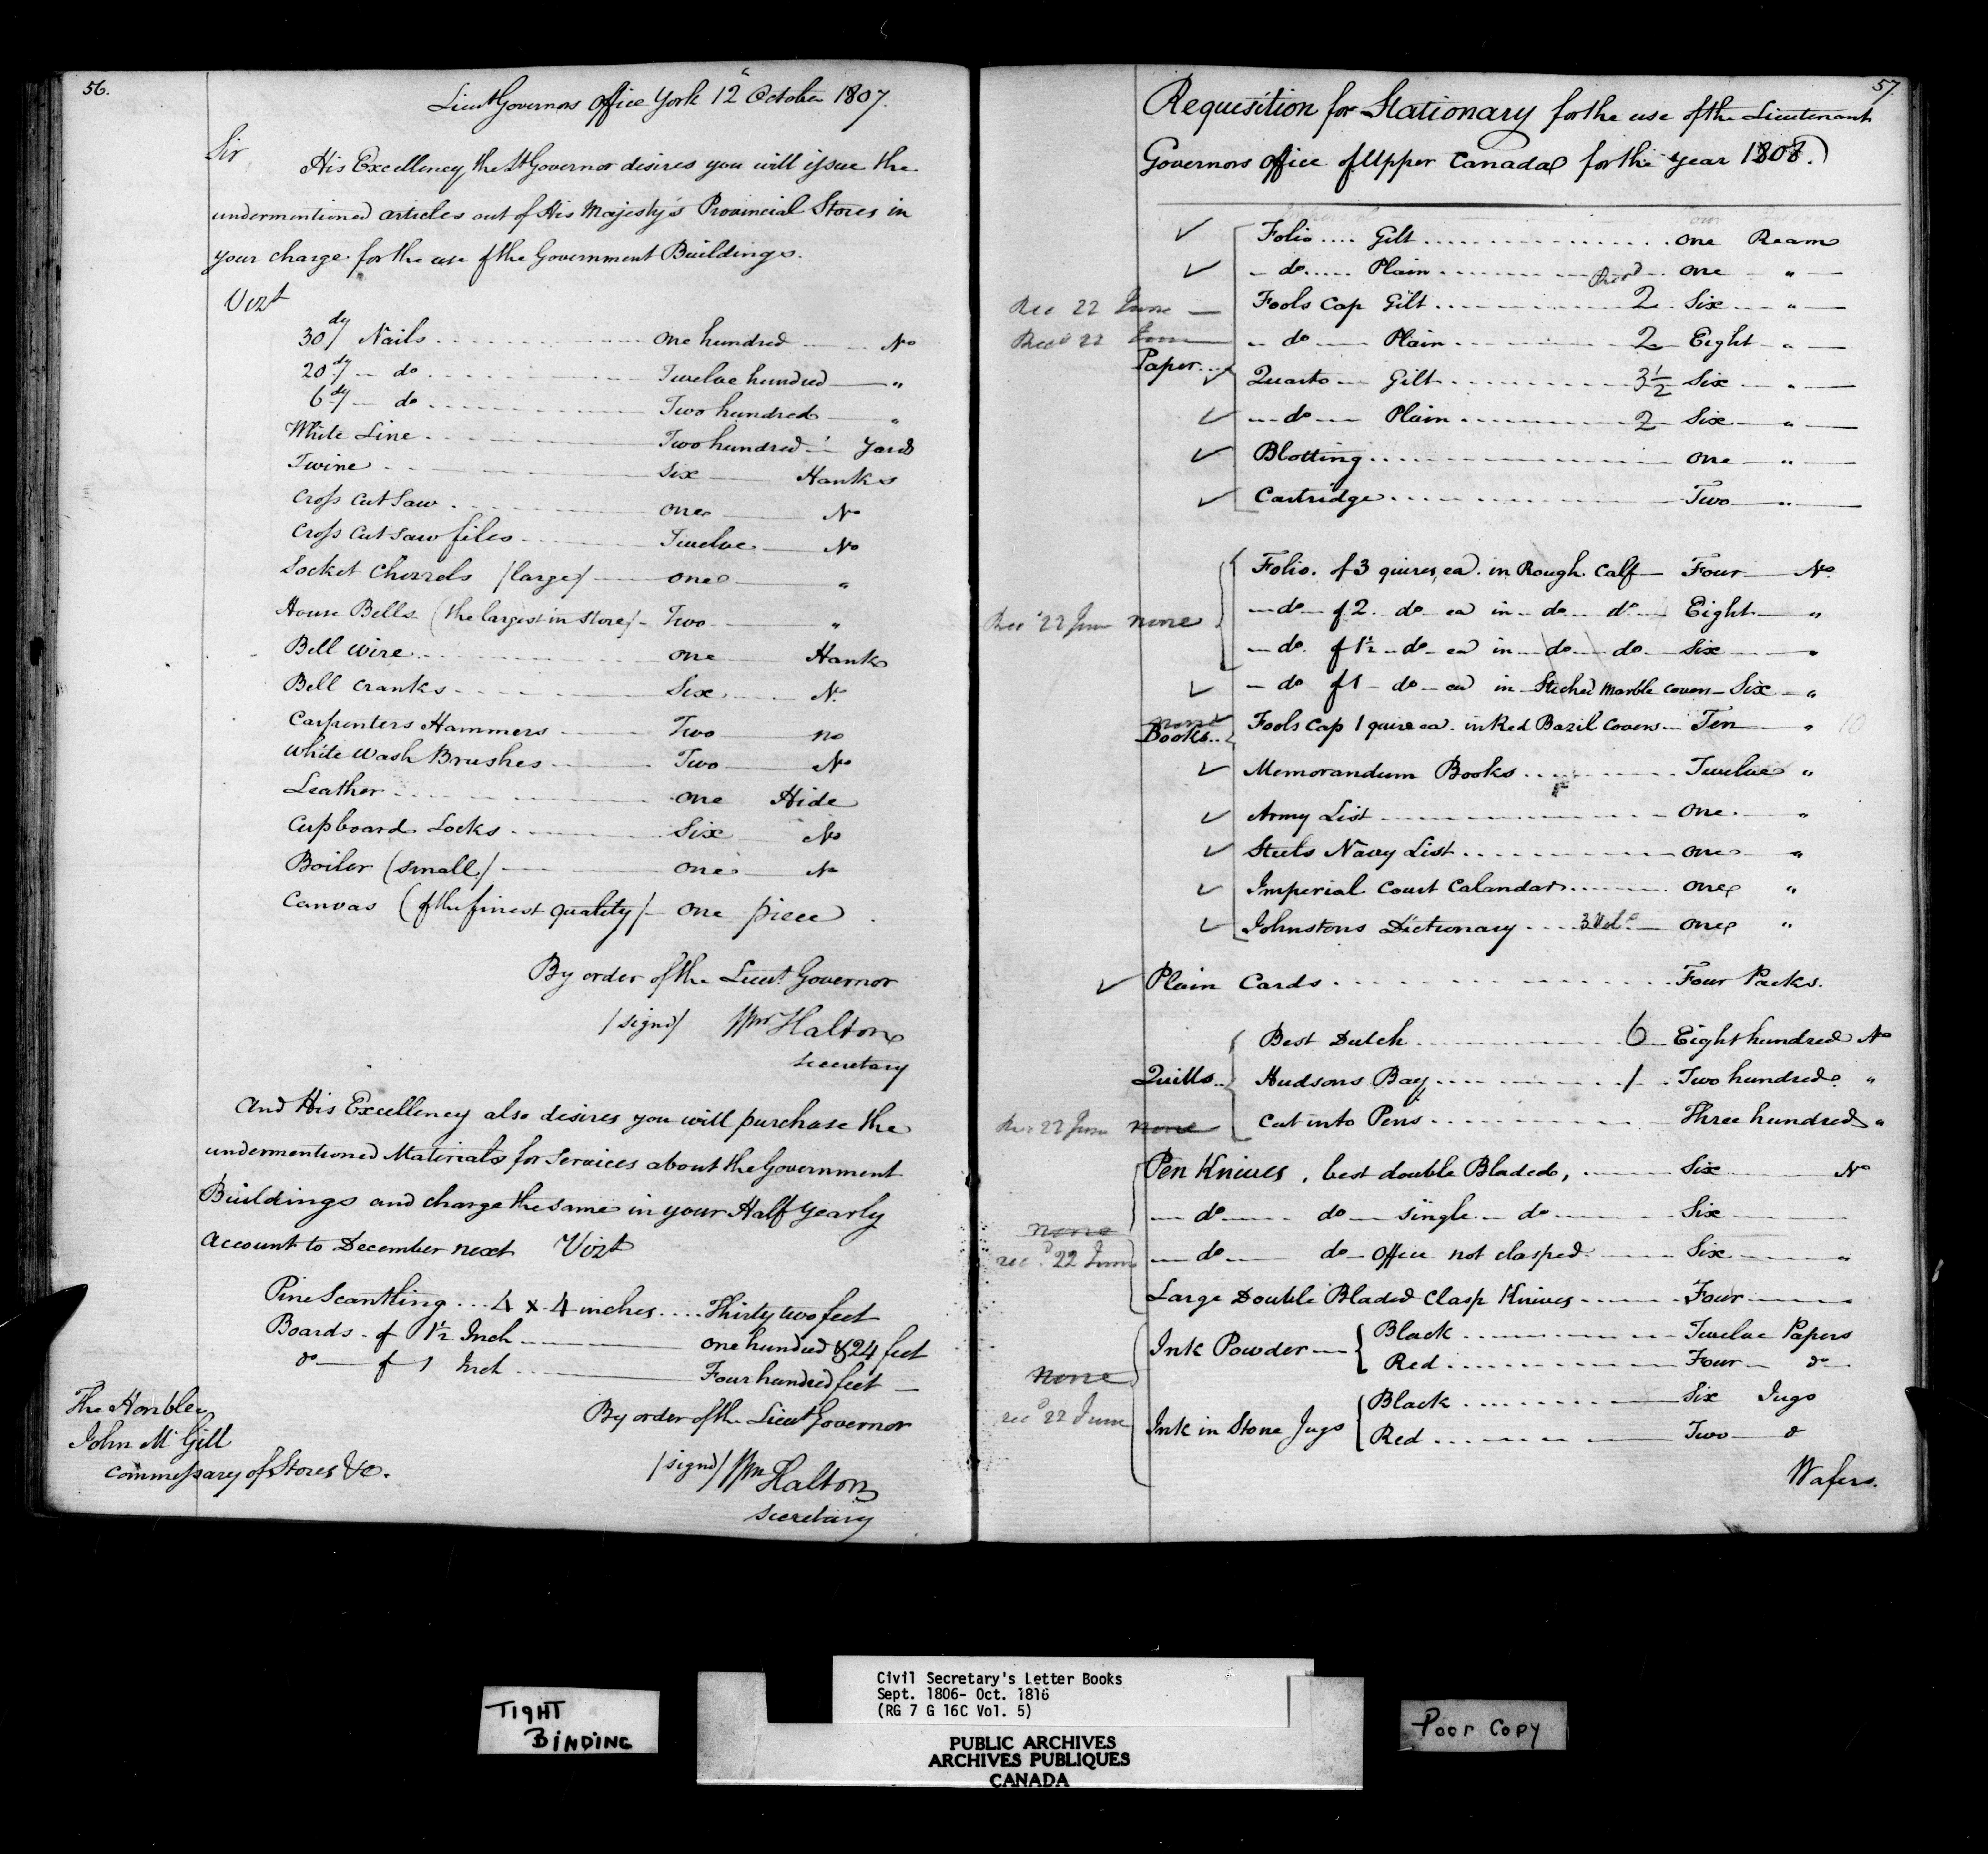 56.
Lieut Governors Office York 12th October 1807.
Sir
His Excellency the Lt Governor desires you will issue the
undermentioned articles out of His Majesty's Provincial Stores in
your charge for the use of the Government Buildings.
Vizt
30dy Nails ........ One hundred ---- No
20dy -- do ........ Twelve hundred ---- "
6dy -- do ........ Two hundred ---- "
White Line ........ Two hundred ---- Yards
Twine ........ Six ---- Hanks
Cross Cut Saw ........ One ---- No
Cross Cut Saw files ........ Twelve ---- No
Socket Chizzels /large/ ---- One ---- "
House Bells (the largest in Store/ - Two ---- "
Bell wire ........ One ---- Hank
Bell Cranks ........ Six ---- No
Carpenters Hammers ---- Two ---- no
White Wash Brushes ---- Two ---- No
Leather ........ One Hide
Cupboard Locks ........ Six ---- No
Boiler (small/ ---- One ---- No
Canvas (of the finest quality/ - One piece.
By order of the Lieut. Governor
/signd/ Wm Halton
Secretary
And His Excellency also desires you will purchase the
undermentioned Materials for Services about the Government
Buildings and charge the same in your Half Yearly
Account to December next Vizt
Pine Scantling ... 4 x 4 inches .... Thirty two feet
Boards - of 1½ Inch ---- One hundred & 24 feet
do -- of 1 Inch ---- Four hundred feet --
By order of the Lieut Governor
/signd/ Wm Halton
Secretary
The Honble
John McGill
Commessary of Stores &c.
57.
Requisition for Stationary for the use of the Lieutenant
Governors Office of Upper Canada for the year 1808.
✓ Folio .... Gilt ........ One Ream
✓ - do ..... Plain ........ One "
Rec 22 June -- Fools Cap Gilt ........ 2 Six "
Recd 22 June -- do -- Plain ........ 2 Eight "
Paper ...
✓ Quarto -- Gilt ........ 3½ Six "
✓ -- do -- Plain ........ 2 Six "
✓ Blotting ........ One "
✓ Cartridge ........ Two "
Folio. of 3 quires, ea. in Rough Calf -- Four -- No
Recd 22 June none -- do -- of 2. do -- ea in -- do -- do -- Eight -- "
-- do. of 1½ -- do - ea in -- do -- do -- Six -- "
✓ - do of 1 - do - ea in Stiched Marble Covers - Six - "
none ✓
Books .. Fools Cap 1 quire ea. in Red Bazil Covers -- Ten " 10
✓ Memorandum Books ........ Twelve "
✓ Army List ........ One "
✓ Steels Navy List ........ One "
✓ Imperial Court Calandar ........ One "
✓ Johnstons Dictionary .... 3 Vols -- One "
✓ Plain Cards ........ Four Packs.
Best Dutch ........ 6 Eight hundred No
Quills .. Hudsons Bay ........ 1 Two hundred "
Rec 22 June none Cut into Pens ........ Three hundred "
Pen Knives, best double Bladed, ---- Six ---- No
-- do -- do -- single -- do ---- Six ----
none
recd 22 June -- do -- do - Office not clasped ---- Six ---- "
Large Double Bladed Clasp Knives ---- Four ----
Ink Powder -- Black ........ Twelve Papers
Red ........ Four -- do
none
recd 22 June
Ink in Stone Jugs Black ........ Six Jugs
Red ........ Two -- do
Wafers.
TIGHT
BINDING
Civil Secretary's Letter Books
Sept. 1806- Oct. 1816
(RG 7 G 16C Vol. 5)
PUBLIC ARCHIVES
ARCHIVES PUBLIQUES
CANADA
Poor Copy